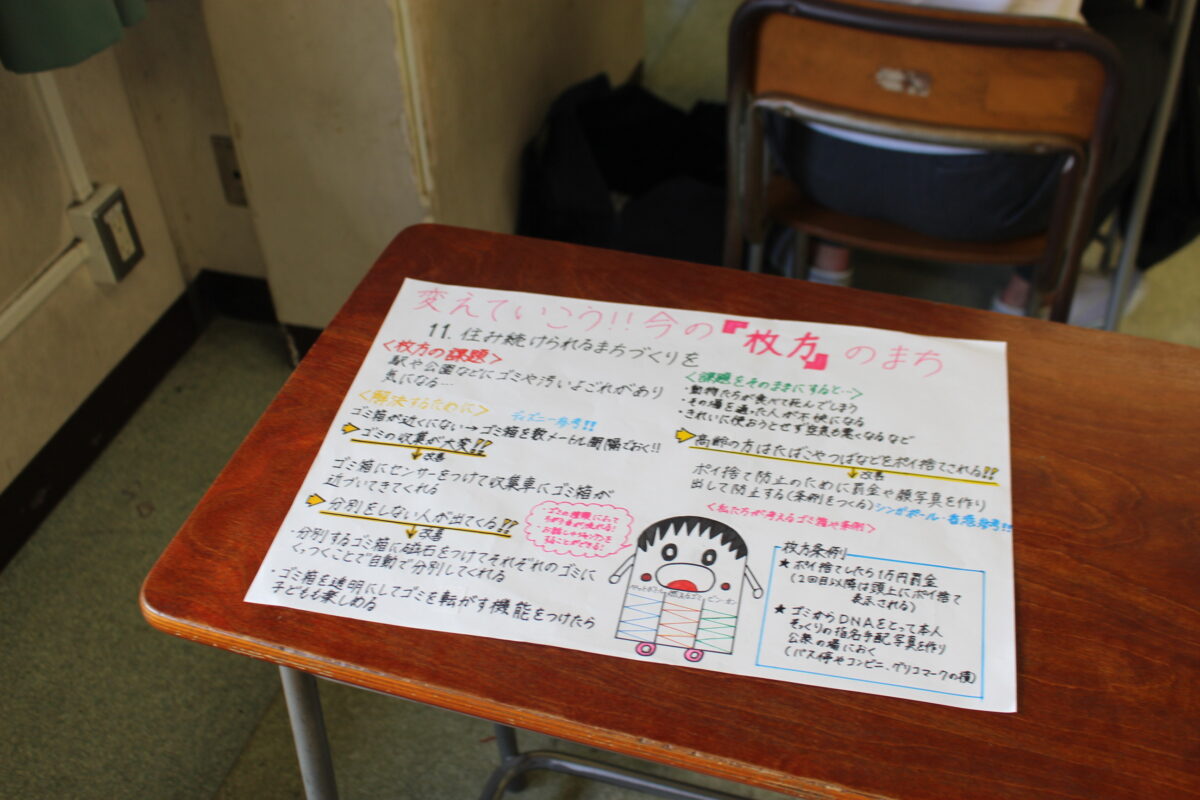 変えていこう!!今の『枚方』のまち
11.住み続けられるまちづくりを
<枚方の課題>
駅や公園などにゴミや汚いよごれがあり
気になる…
<解決するために>
ディズニー参考!!
ゴミ箱が近くにない→ゴミ箱を数メートル間隔でおく!!
ゴミの収集が大変!!
改善
ゴミ箱にセンサーをつけて収集車にゴミ箱が
近づいてきてくれる
分別をしない人が出てくる!!
改善
・分別するゴミ箱に磁石をつけてそれぞれのゴミに
くっつくことで自動で分別してくれる
・ゴミ箱を透明にしてゴミを転がす機能をつけたら
子どもも楽しめる
<課題をそのままにすると…>
・動物たちが食べて死んでしまう
・その場を通った人が不快になる
・きれいに使おうとせず空気も悪くなるなど
高齢の方はたばこやつばなどをポイ捨てされる!!
改善
ポイ捨て防止のために罰金や顔写真を作り
出して防止する(条例をつくる)シンガポール・香港参考!!
<私たちが考えるゴミ箱や条例>
・ゴミの種類によって
・お話しやジャンケンを
することができる!
燃えるゴミ
ビン・カン
枚方条例
★ポイ捨てしたら1万円罰金
(2回目以降は頭上にポイ捨て
表示される)
★ゴミからDNAをとって本人
そっくりの指名手配写真を作り
公衆の場におく
(バス停やコンビニ、グリコマークの横)